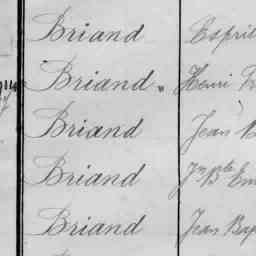 Briand Esprit
Briand Henri
Briand Jean B
Briand Jn Bte Em
Briand Jean Bap